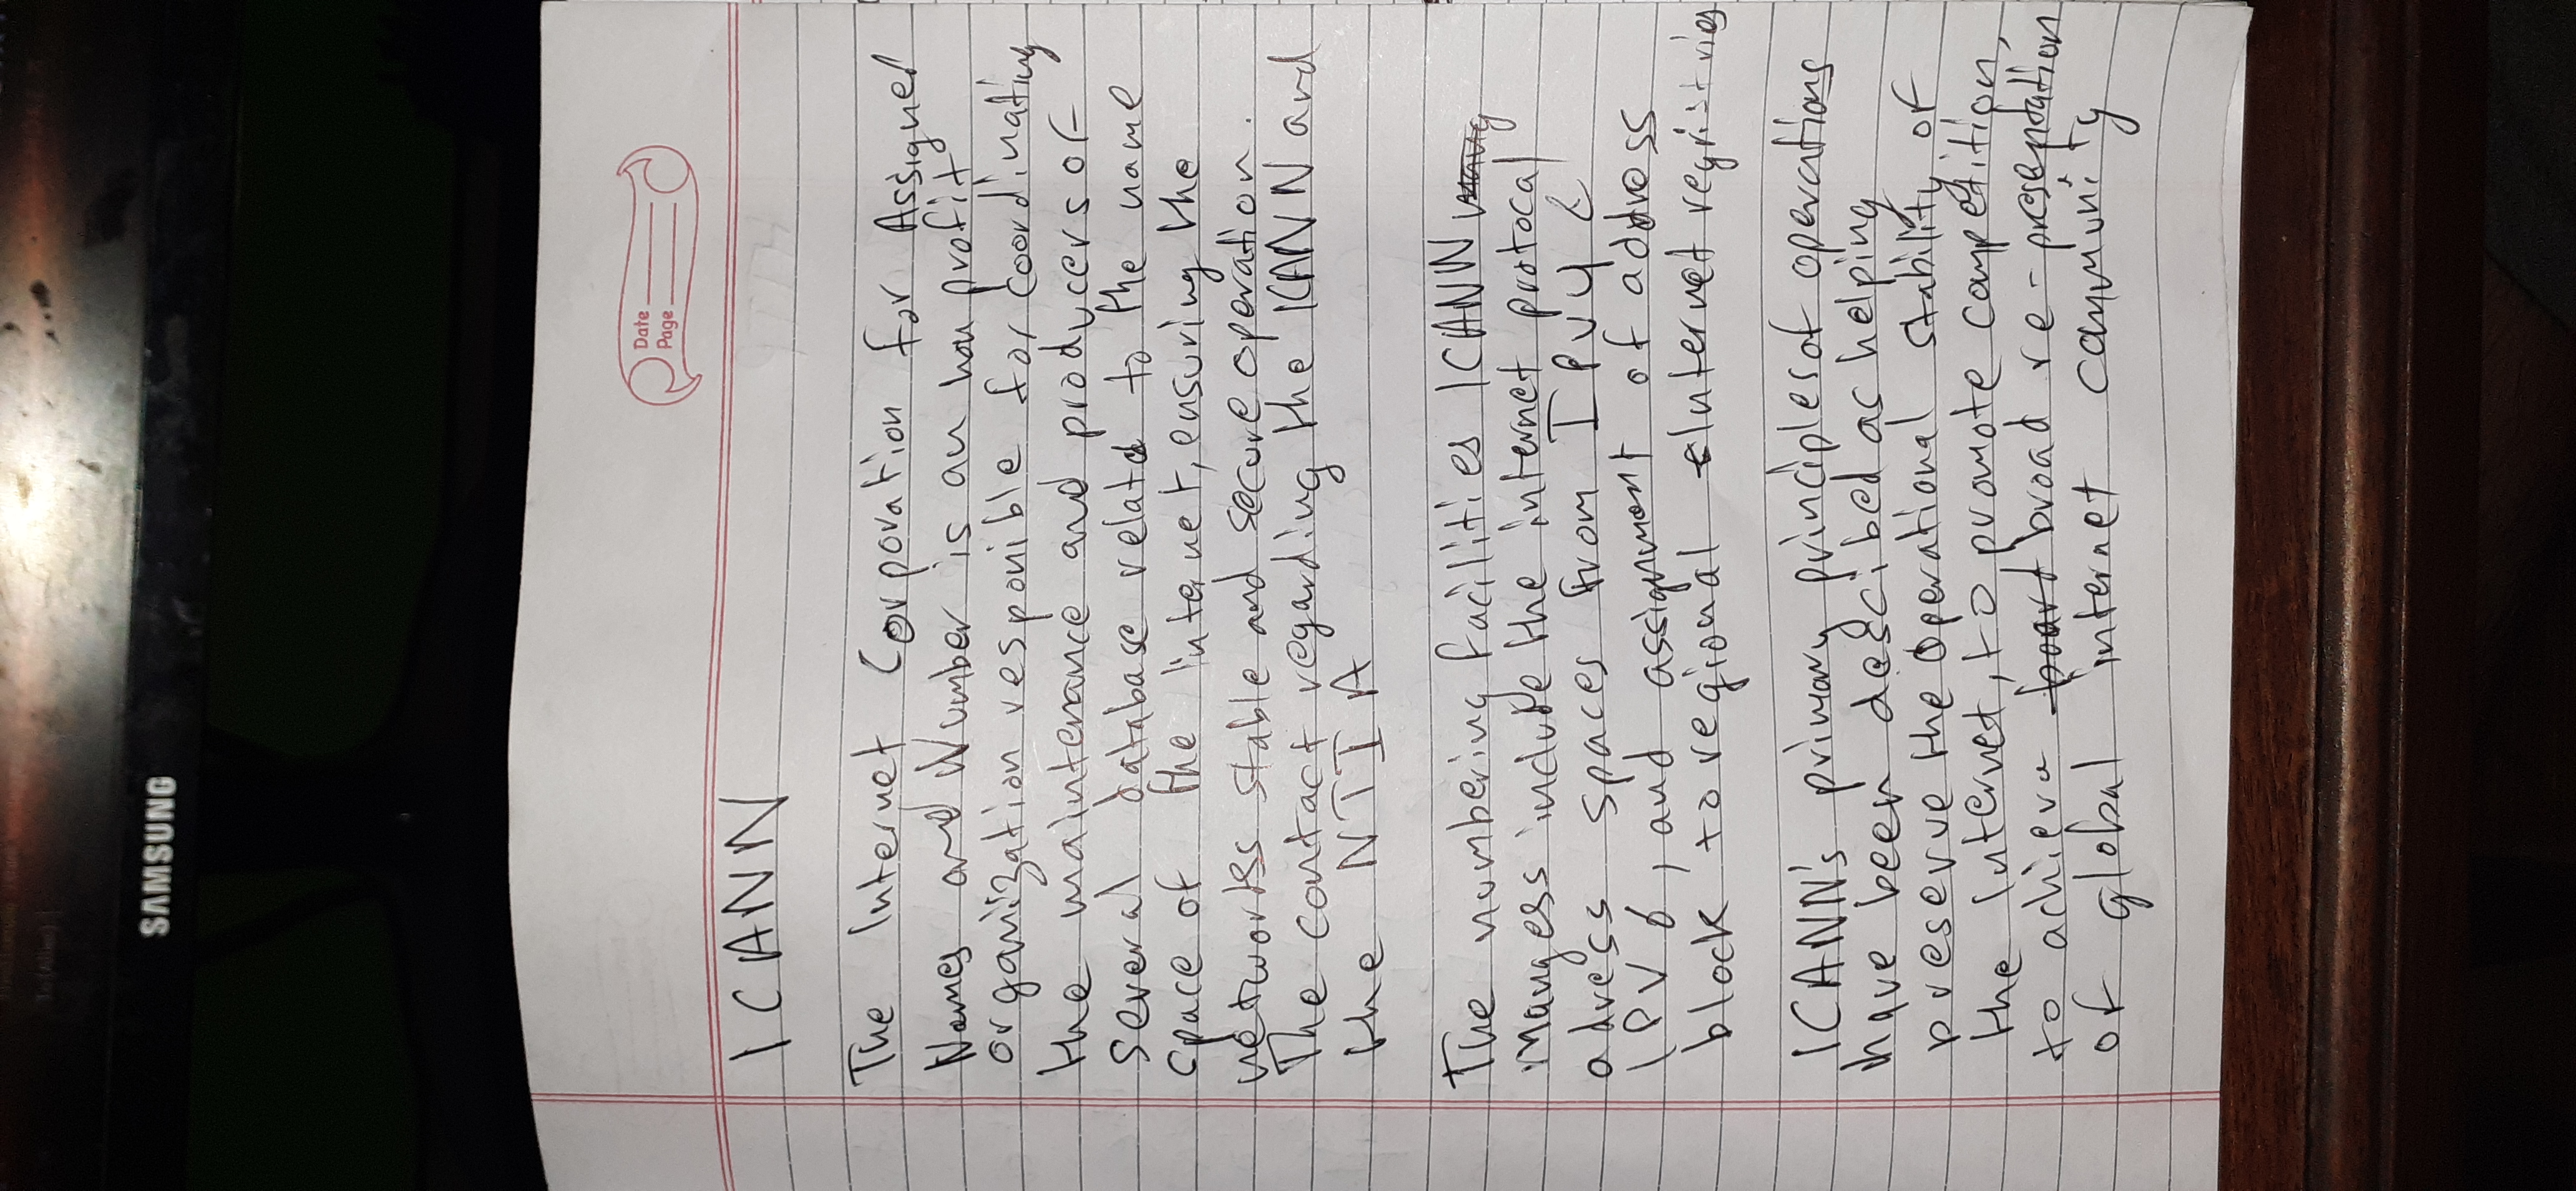 To (Alias)
SAMSUNG
Date
Page
ICANN
The Internet Corporation for Assigned
Names and Number is an non profit
organization responible for coordinating
the maintenance and producers of
several database relatd to the name
space of the internet, ensuring the
networkss stable and secure operation.
The contact regarding the ICANN and
the NTIA
The numbering facilities ICANN
mangess include the internet protocal
adress spaces from IPv4 &
IPV6, and assignment of address
block to regional Internet registries
ICANN's primary principles of operations
have been described as helping
preserve the operational stability of
the Internet, to promote competition,
to achieve board broad re-presentation
of global internet community